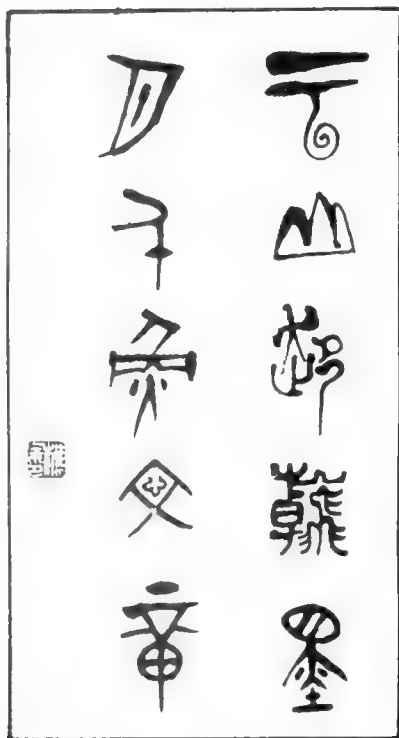 云山起翰墨
月斗奂文章